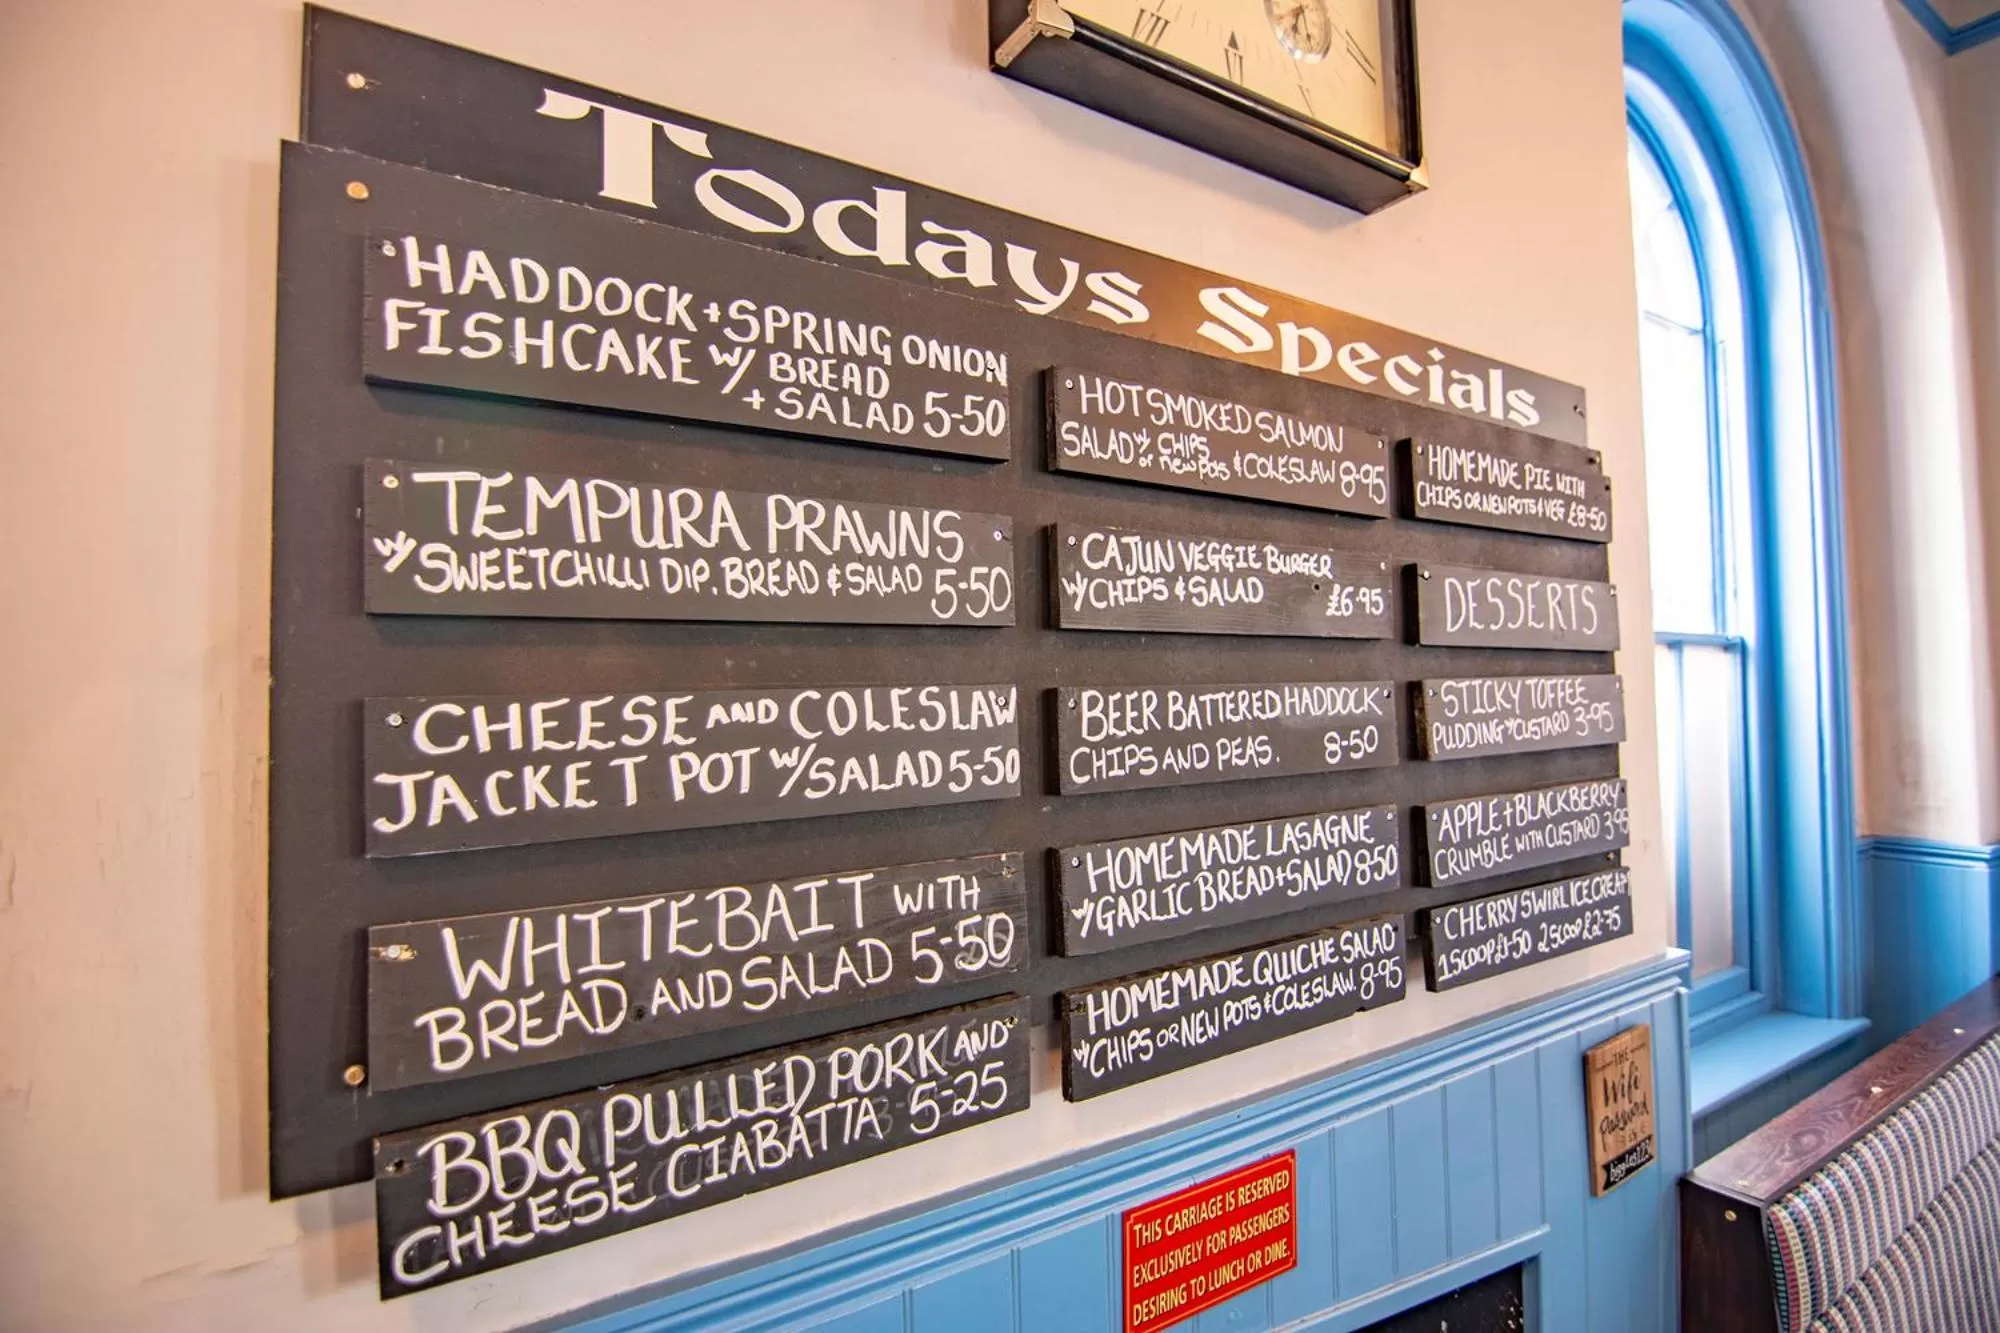 VII
VI
V
Todays Specials
HADDOCK + SPRING ONION
FISHCAKE W/ BREAD
+ SALAD 5-50
TEMPURA PRAWNS
W/ SWEETCHILLI DIP. BREAD & SALAD 5-50
CHEESE AND COLESLAW
JACKET POT W/ SALAD 5-50
WHITEBAIT WITH
BREAD AND SALAD 5-50
BBQ PULLED PORK AND
CHEESE CIABATTA 5-25
HOT SMOKED SALMON
SALAD W/ CHIPS
or new pots & COLESLAW 8-95
CAJUN VEGGIE BURGER
W/ CHIPS & SALAD £6-95
BEER BATTERED HADDOCK
CHIPS AND PEAS. 8-50
HOMEMADE LASAGNE
W/ GARLIC BREAD + SALAD 8-50
HOMEMADE QUICHE SALAD
W/ CHIPS OR NEW POTS & COLESLAW. 8-95
HOMEMADE PIE WITH
CHIPS OR NEW POTS & VEG £8-50
DESSERTS
STICKY TOFFEE
PUDDING W/ CUSTARD 3-95
APPLE + BLACKBERRY
CRUMBLE WITH CUSTARD 3-95
CHERRY SWIRL ICE CREAM
1 SCOOP £1-50 2 SCOOP £2-75
THIS CARRIAGE IS RESERVED
EXCLUSIVELY FOR PASSENGERS
DESIRING TO LUNCH OR DINE.
THE
Wifi
Password
IS